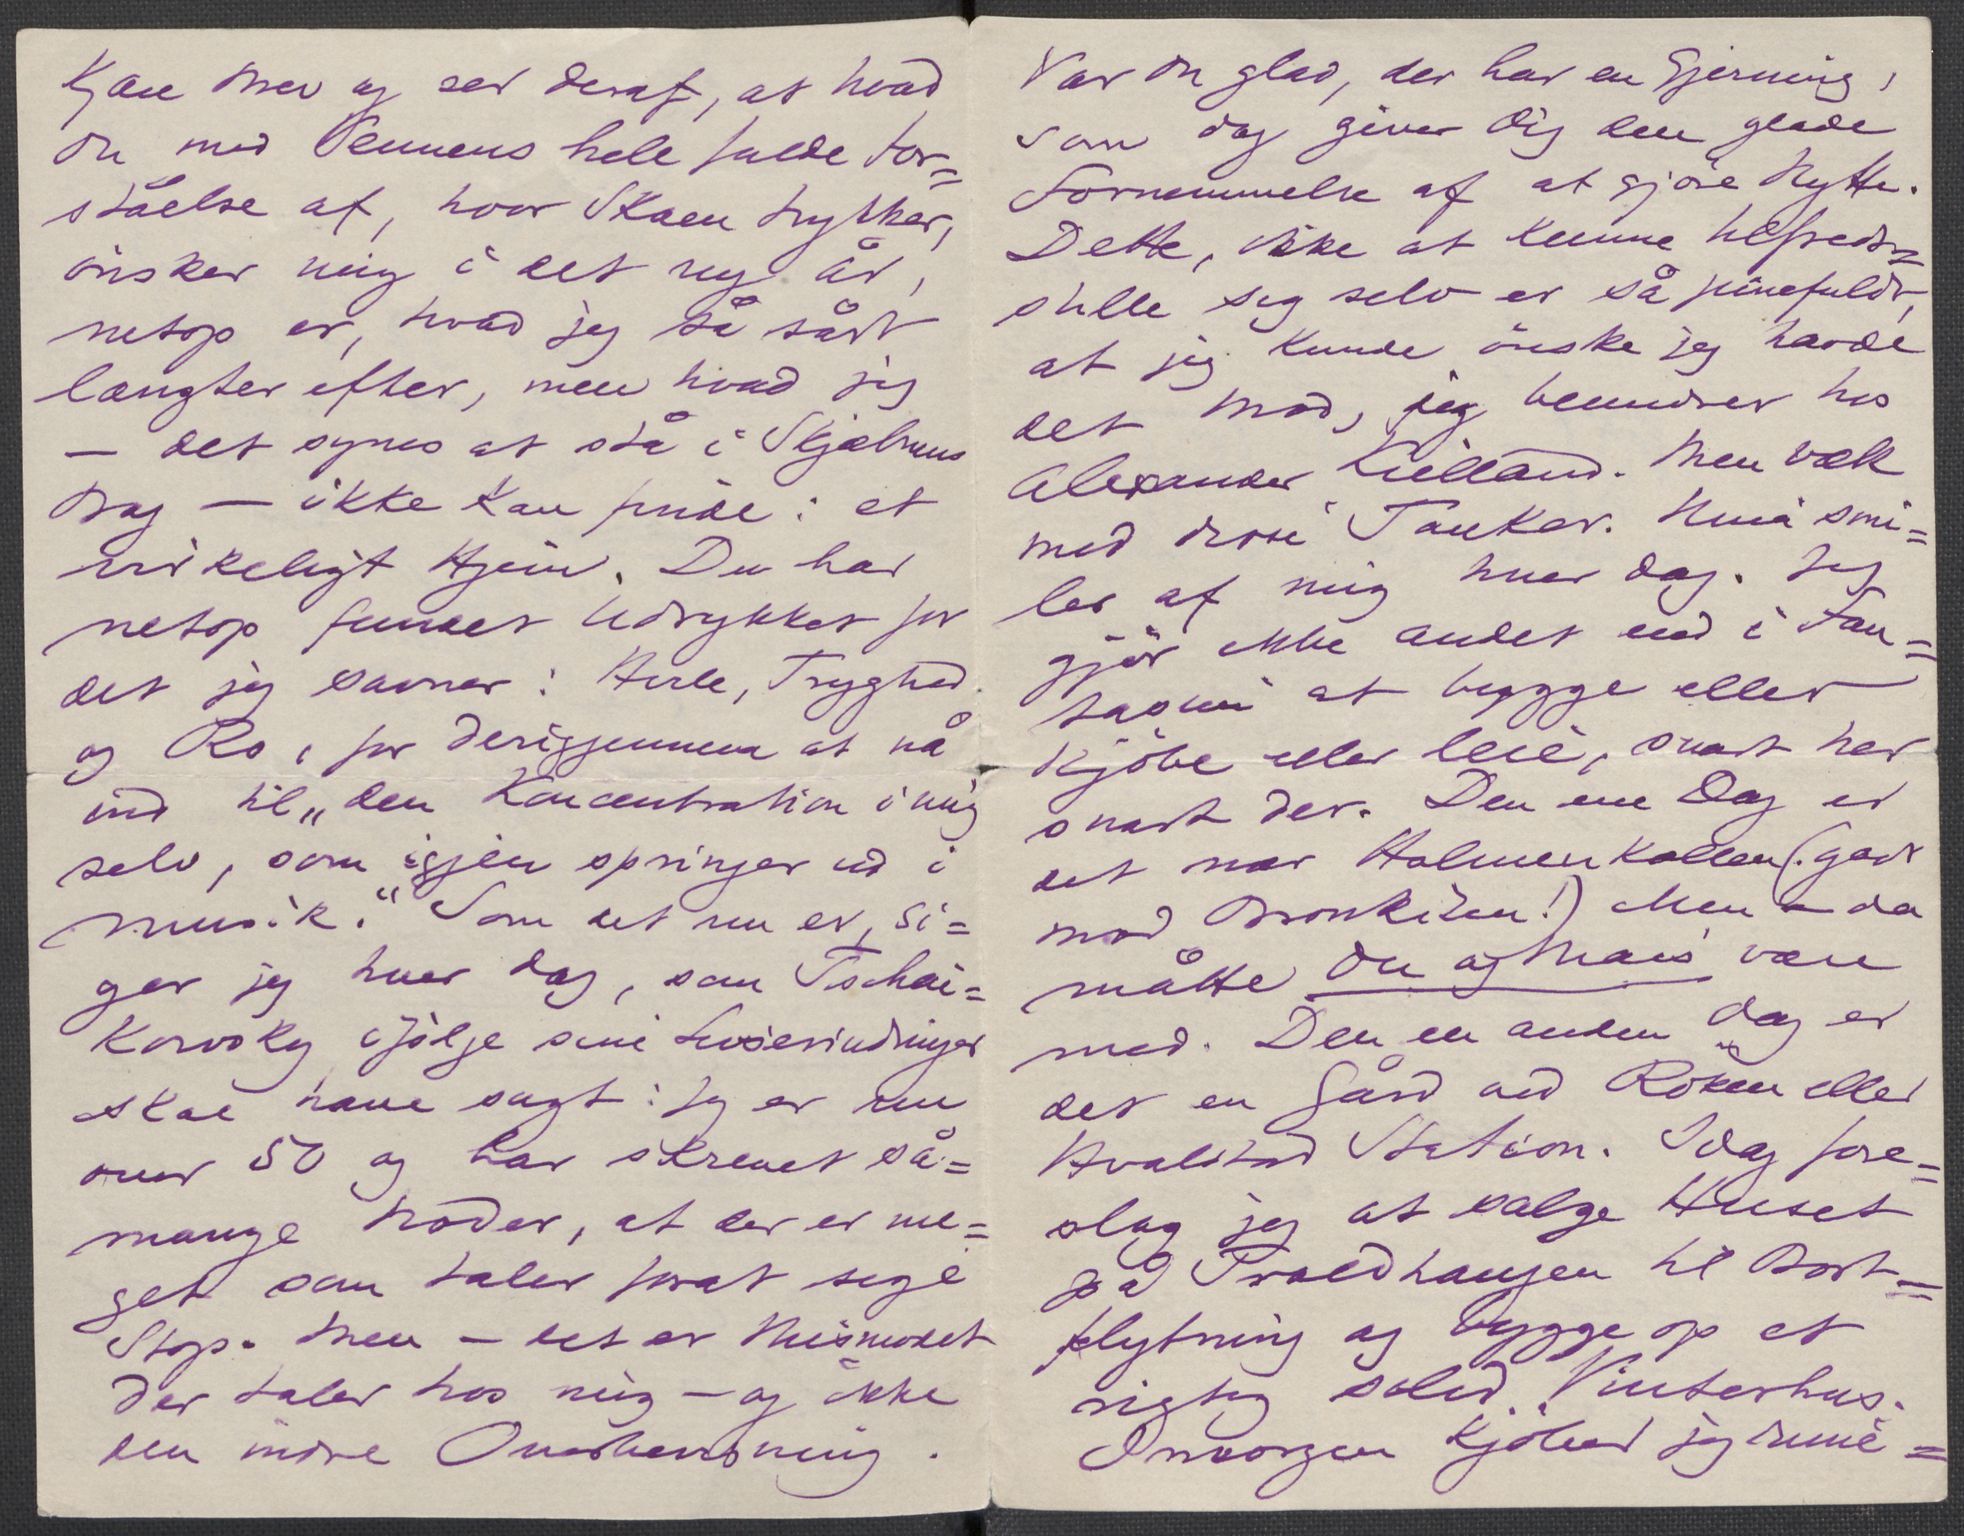 kjære Brev og ser deraf, at hvad
Du med Vennens hele fulde For=
ståelse af, hvor Skoen trykker,
ønsker mig i det ny år,
netop er, hvad jeg så sårt
længter efter, men hvad jeg
— det synes at stå i Skjæbnens
Bog — ikke kan finde: et
virkeligt Hjem. Du har
netop fundet Udtrykket for
det jeg savner: Hvile, Tryghed
og Ro, for derigjennem at nå
ind til „den Koncentration i mig
selv, som igjen springer ud i
Musik." Som det nu er, si=
ger jeg hver Dag, som Tschai=
kowsky ifølge sine Livserindringer
skal have sagt: Jeg er nu
over 50 og har skrevet så=
mange Noder, at der er me=
get som taler forat sige
Stop. Men — det er Mismodet
der taler hos mig — og ikke
den indre Overbevisning.
Vær Du glad, der har en Gjerning,
som dog giver Dig den glade
Fornemmelse af at gjøre Nytte.
Dette, ikke at kunne tilfreds=
stille sig selv er så pinefuldt,
at jeg kunde ønske jeg havde
det Mod, jeg beundrer hos
Alexander Kielland. Men væk
med disse Tanker. Nina smi=
ler af mig hver Dag. Jeg
gjør ikke andet end i Fan=
tasien at bygge eller
kjøbe eller leie, snart her
snart der. Den ene Dag er
det nær Holmenkollen (godt
mod Bronkiten!) Men — da
måtte Du og Mais være
med. Den en anden Dag er
det en Gård ved Røken eller
Hvalstad Station. Idag fore=
slog jeg at sælge Huset
på Troldhaugen til Bort=
flytning og bygge op et
rigtig solid Vinterhus.
Imorgen kjøber jeg rime=